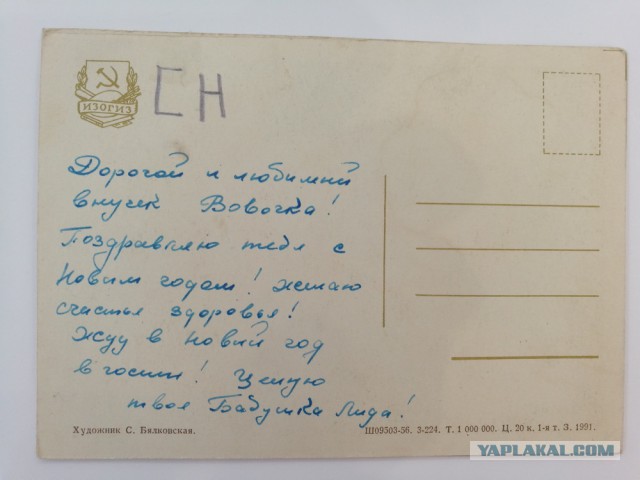 ИЗОГИЗ
СН
Дорогой и любимый
внучек Вовочка!
Поздравляю тебя с
Новым годом! желаю
счастья здоровья!
Жду в новый год
в гости! Целую
твоя Бабушка Лида!
Художник С. Бялковская.
Ш09503-56. З-224. Т. 1 000 000. Ц. 20 к. 1-я т. З. 1991.
YAPLAKAL.COM